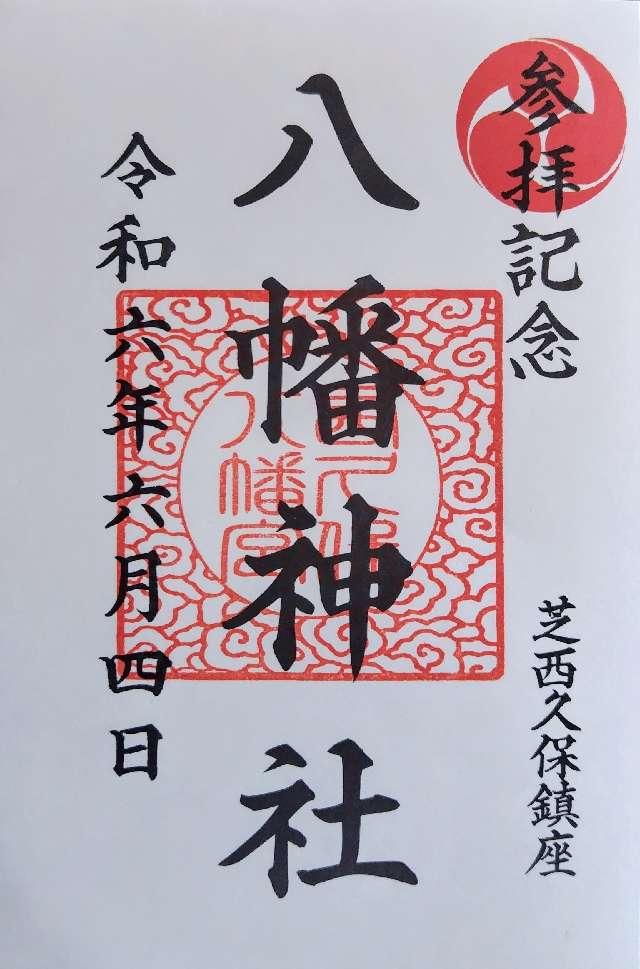 参拝記念
芝西久保鎮座
八幡神社
令和六年六月四日
八幡宮